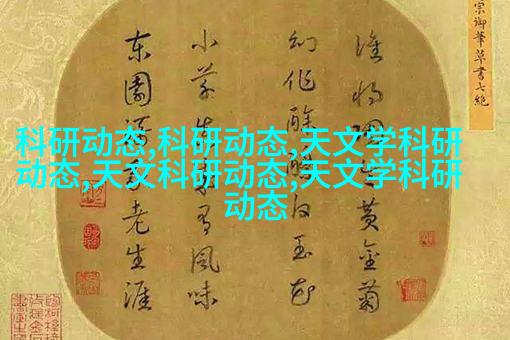 宗御筆草書七絶
科研动态,科研动态,天文学科研
动态,天文科研动态,天文学科研
动态
誰将黄金菊
幻作酴白玉花
小草有風味
東園老生涯